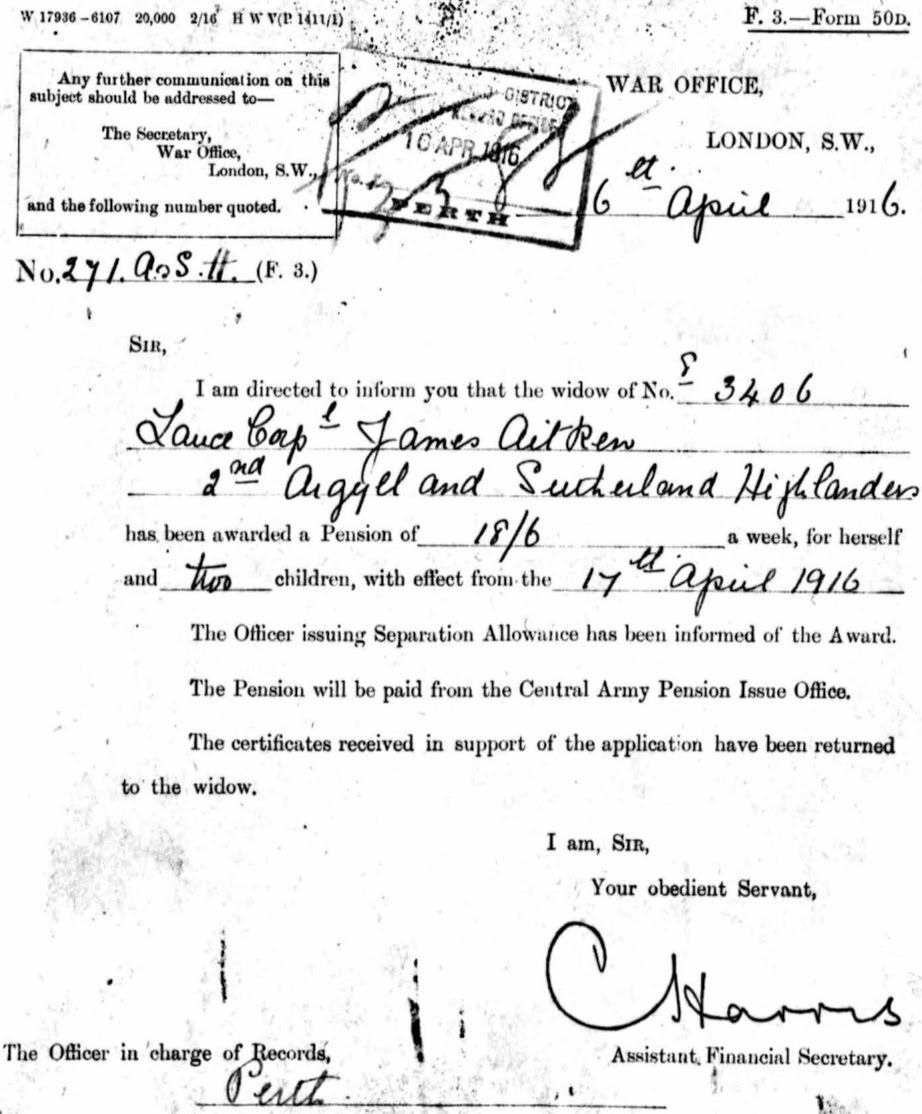 W 17936–6107 20,000 2/16 H W V(P 1411/1)
F. 3.—Form 50D.
Any further communication on this
subject should be addressed to—
The Secretary,
War Office,
London, S.W.,
and the following number quoted.
DISTRICT
RECORD OFFICE
10 APR 1916
PERTH
WAR OFFICE,
LONDON, S.W.,
6th April 1916.
No. 271. A&S.H. (F. 3.)
SIR,
I am directed to inform you that the widow of No. S 3406
Lance Corpl James Aitken
2nd Argyll and Sutherland Highlanders
has been awarded a Pension of 18/6 a week, for herself
and two children, with effect from the 17th April 1916
The Officer issuing Separation Allowance has been informed of the Award.
The Pension will be paid from the Central Army Pension Issue Office.
The certificates received in support of the application have been returned
to the widow.
I am, SIR,
Your obedient Servant,
C Harris
Assistant Financial Secretary.
The Officer in charge of Records,
Perth